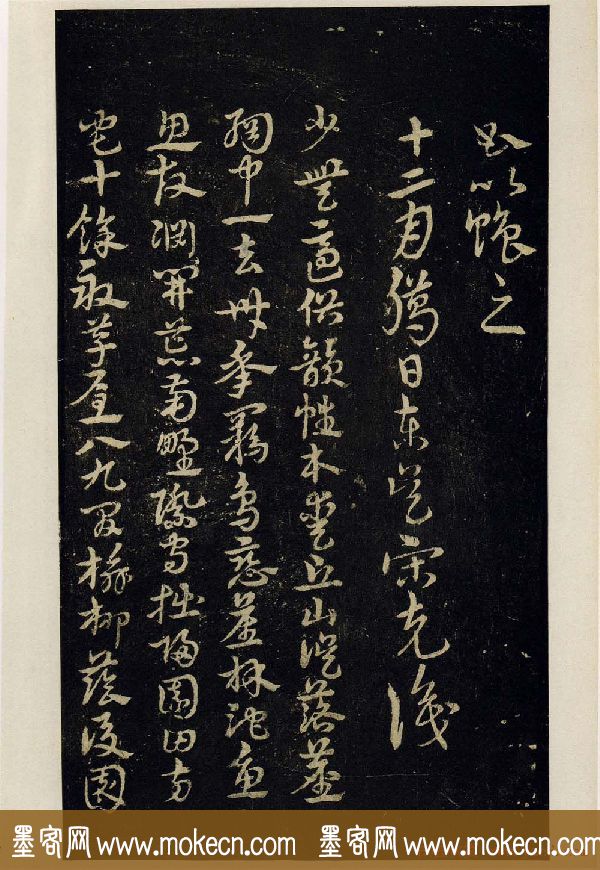 書以之
十二月臘日東吳宋克識
少無適俗韻性本愛丘山誤落塵
網中一去卅年羈鳥戀舊林池魚
思故淵開荒南野際守拙歸園田方
宅十餘畝草屋八九間榆柳蔭後園
墨客网 www.mokecn.com 墨客网 www.mokecn.com